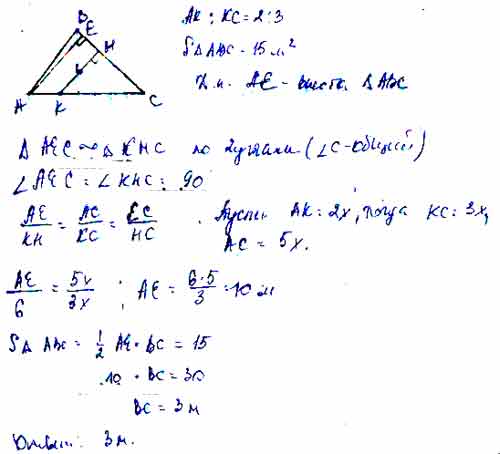 B
E
H
6
A K C
AK : KC = 2 : 3
S△ABC - 15 м²
AE - высота △ABC
△ AEC ~ △ KHC по 2 углам (∠C - общий)
∠AEC = ∠KHC = 90
AE/KH = AC/KC = EC/HC . Пусть AK = 2x, тогда KC = 3x,
AC = 5x.
AE/6 = 5x/3x ; AE = 6·5/3 = 10 м
S△ ABC = 1/2 AE · BC = 15
10 · BC = 30
BC = 3 м
Ответ: 3 м.